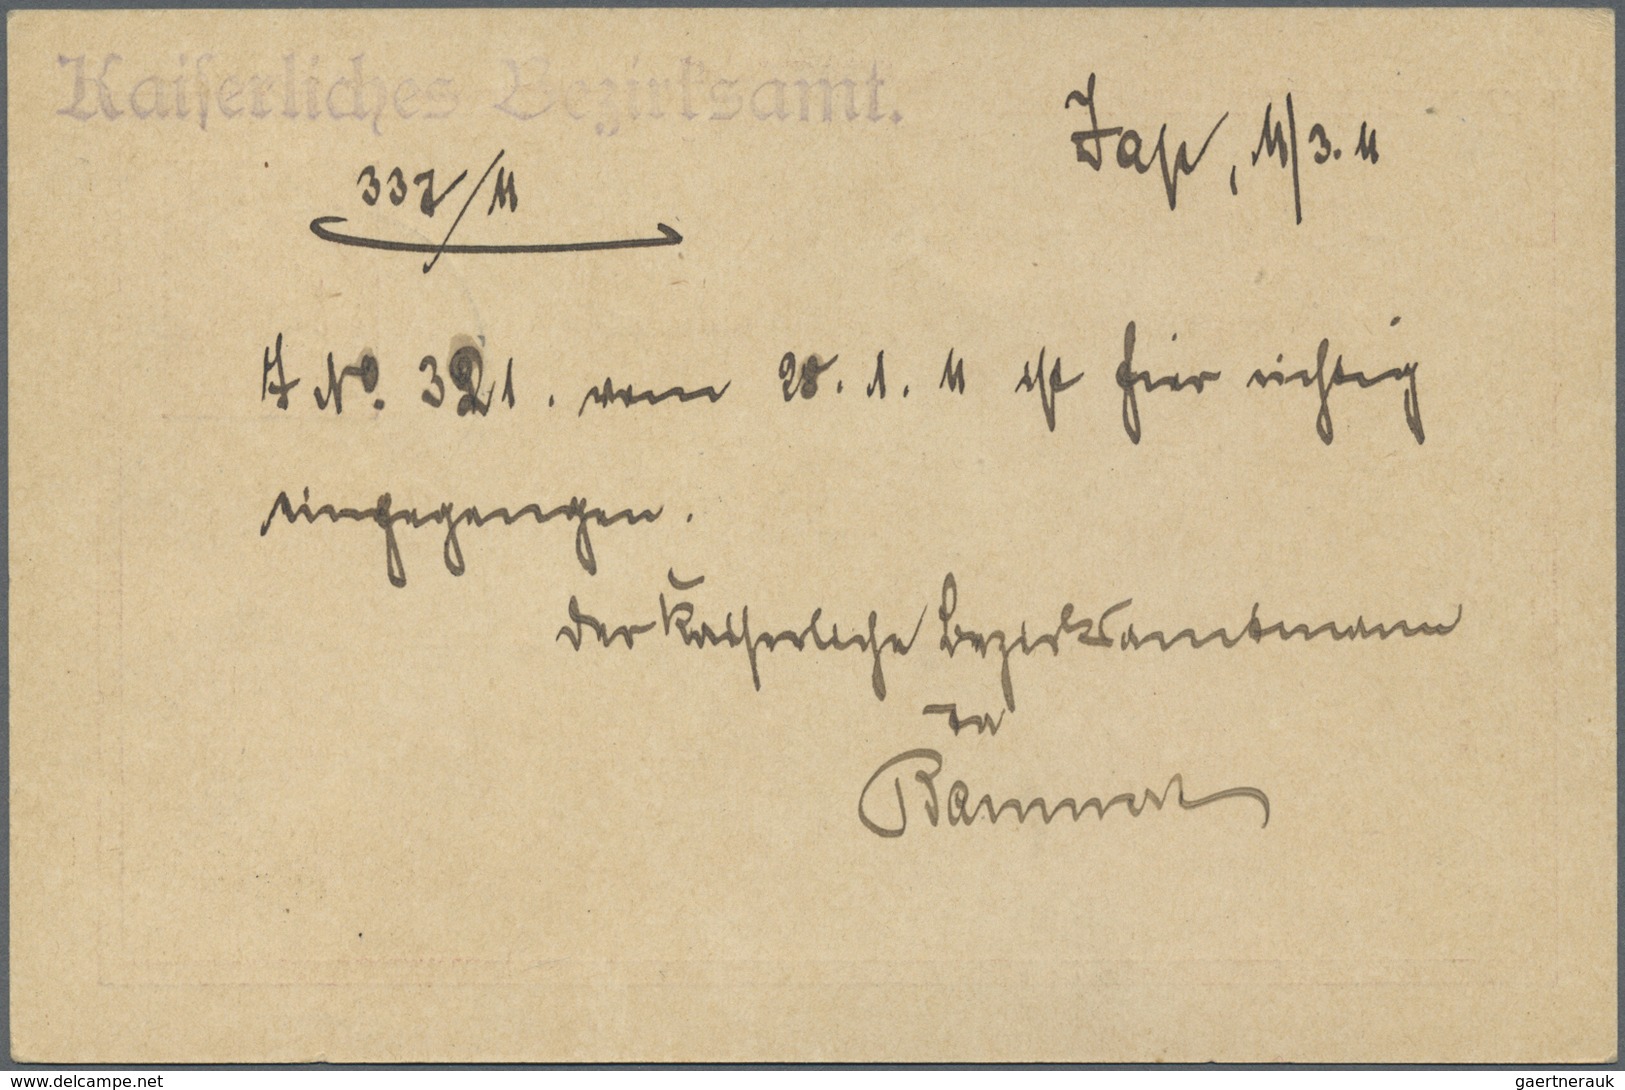 Kaiserliches Bezirksamt.
Jap, 11/3.11
337/11
J No. 321. vom 28.1.11 ist hier richtig
eingegangen.
der Kaiserliche Bezirksamtmann
www.delcampe.net
gaertnerauk